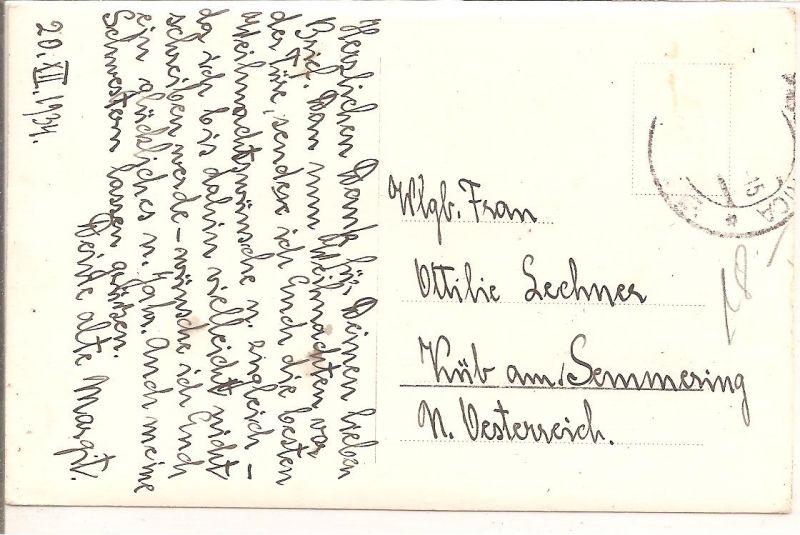 Herzlichen Dank für Deinen lieben
Brief. Dan nun Weihnachten vor
der Türe, sende ich Euch die besten
Weihnachtswünsche u. zugleich -
da ich bis dahin vielleicht nicht
schreiben werde - wünsche ich Euch
ein glückliches n. Jahr. Auch meine
Schwestern lassen grüßen.
Deine alte Margit.
20. XII. 1934.
Wlgb. Frau
Ottilie Lechner
Küb am/Semmering
N. Oesterreich.
87